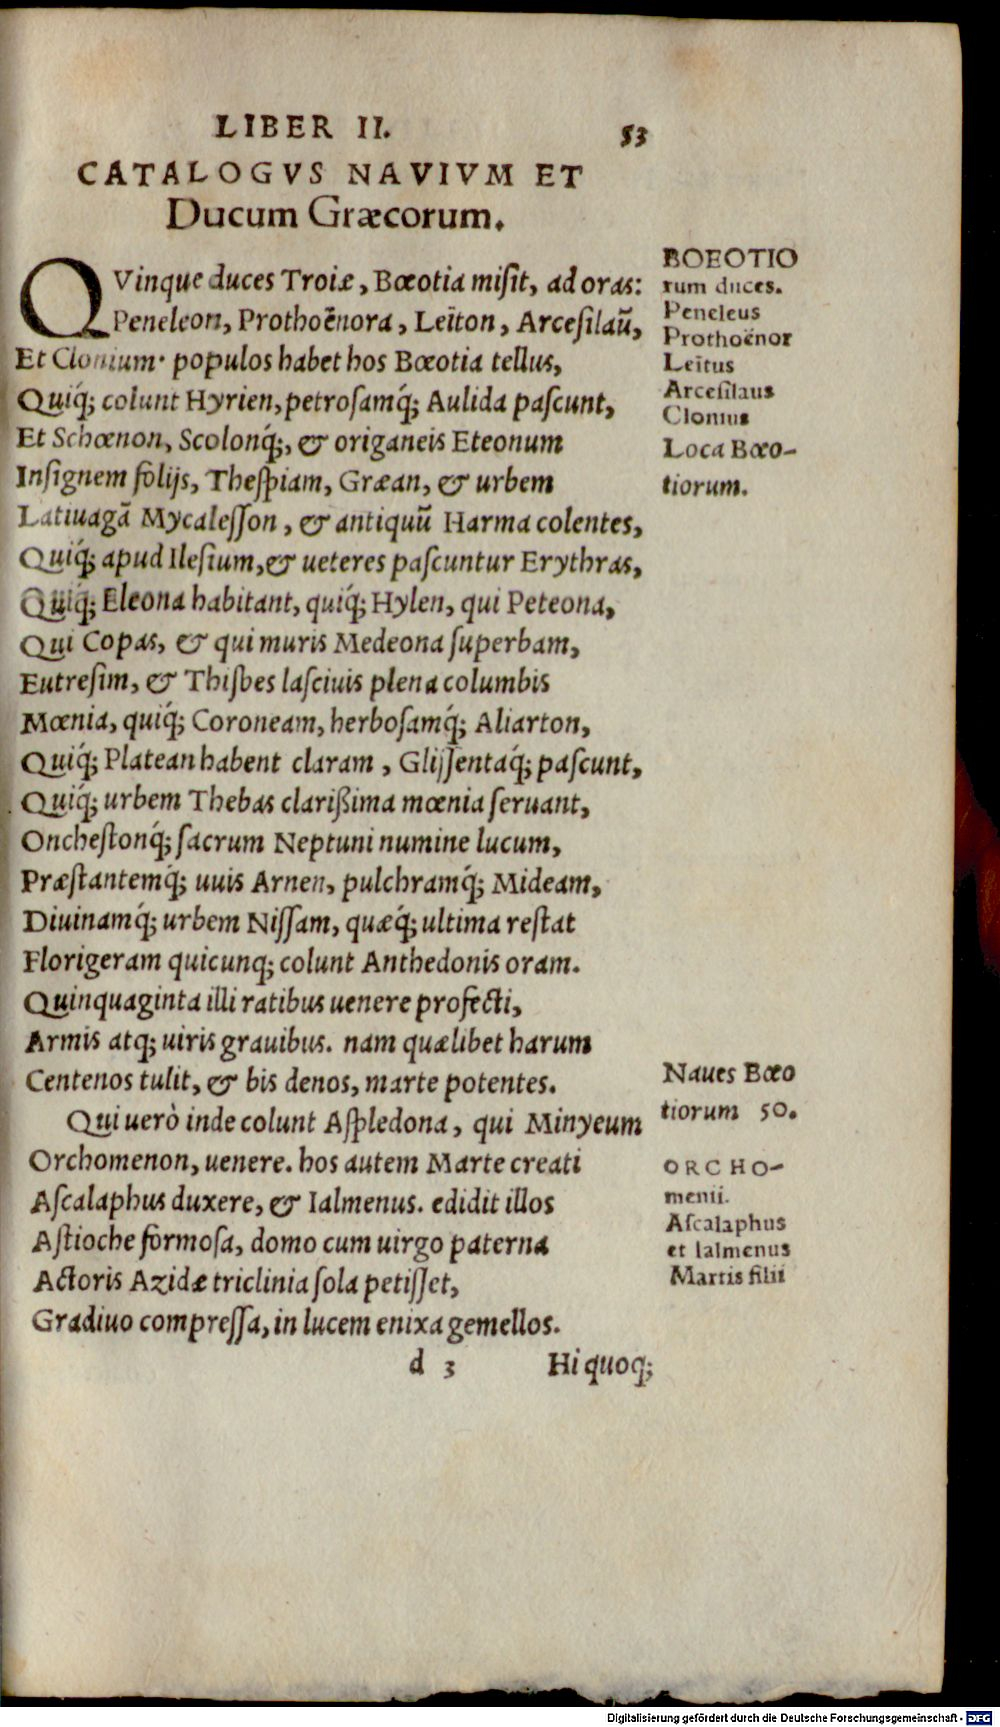 LIBER II. 53
CATALOGVS NAVIVM ET
Ducum Græcorum.
QVinque duces Troiæ, Bœotia misit, ad oras:
Peneleon, Prothoënora, Leïton, Arcesilaũ,
Et Clonium· populos habet hos Bœotia tellus,
Quiq́; colunt Hyrien, petrosamq́; Aulida pascunt,
Et Schœnon, Scolonq́;, & origaneis Eteonum
Insignem folijs, Thespiam, Græan, & urbem
Latiuagã Mycalesson, & antiquũ Harma colentes,
Quiq́; apud Ilesium, & ueteres pascuntur Erythras,
Quiq́; Eleona habitant, quiq́; Hylen, qui Peteona,
Qui Copas, & qui muris Medeona superbam,
Eutresim, & Thisbes lasciuis plena columbis
Mœnia, quiq́; Coroneam, herbosamq́; Aliarton,
Quiq́; Platean habent claram, Glissentaq́; pascunt,
Quiq́; urbem Thebas clarißima mœnia seruant,
Onchestonq́; sacrum Neptuni numine lucum,
Præstantemq́; uuis Arnen, pulchramq́; Mideam,
Diuinamq́; urbem Nissam, quæq́; ultima restat
Florigeram quicunq; colunt Anthedonis oram.
Quinquaginta illi ratibus uenere profecti,
Armis atq; uiris grauibus. nam quælibet harum
Centenos tulit, & bis denos, marte potentes.
Qui uerò inde colunt Aspledona, qui Minyeum
Orchomenon, uenere. hos autem Marte creati
Ascalaphus duxere, & Ialmenus. edidit illos
Astioche formosa, domo cum uirgo paterna
Actoris Azidæ triclinia sola petisset,
Gradiuo compressa, in lucem enixa gemellos.
d 3 Hi quoq;
BOEOTIO
rum duces.
Peneleus
Prothoënor
Leïtus
Arcesilaus
Clonius
Loca Bœo-
tiorum.
Naues Bœo
tiorum 50.
ORCHO-
menii.
Ascalaphus
et Ialmenus
Martis filii
Digitalisierung gefördert durch die Deutsche Forschungsgemeinschaft - DFG